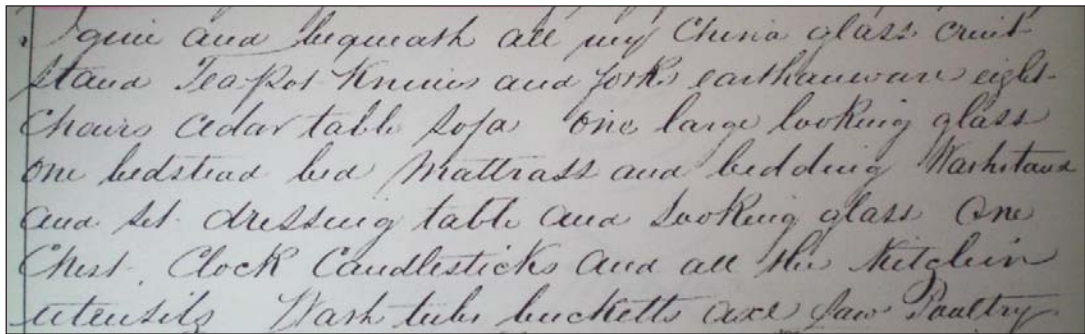 I give and bequeath all my China glass cruit
stand Tea-Pot Knives and forks earthanware eight
Chairs Cedar table Sofa one large looking glass
one bedstead bed Mattrass and bedding Washstand
and set dressing table and Looking glass One
Chest Clock Candlesticks and all the Kitchin
utensils Wash tubs bucketts axe Saw Poultry